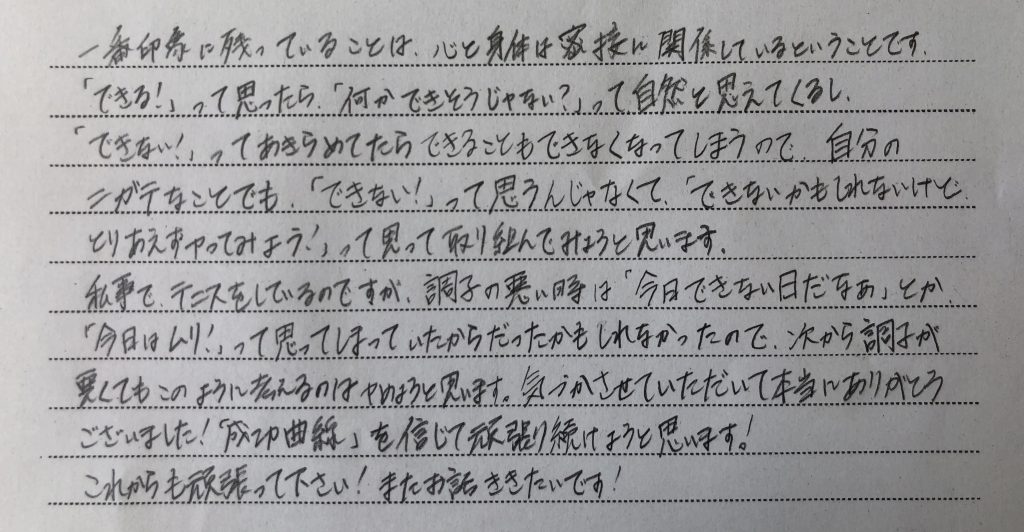 一番印象に残っていることは、心と身体は密接に関係しているということです。
「できる!」って思ったら、「何かできそうじゃない?」って自然と思えてくるし、
「できない!」ってあきらめてたらできることもできなくなってしまうので、自分の
ニガテなことでも、「できない!」って思うんじゃなくて、「できないかもしれないけど、
とりあえずやってみよう!」って思って取り組んでみようと思います。
私事で、テニスをしているのですが、調子の悪い時は「今日できない日だなぁ」とか、
「今日はムリ!」って思ってしまっていたからだったかもしれなかったので、次から調子が
悪くてもこのように考えるのはやめようと思います。気づかさせていただいて本当にありがとう
ございました!「成功曲線」を信じて頑張り続けようと思います!
これからも頑張って下さい!またお話ききたいです!